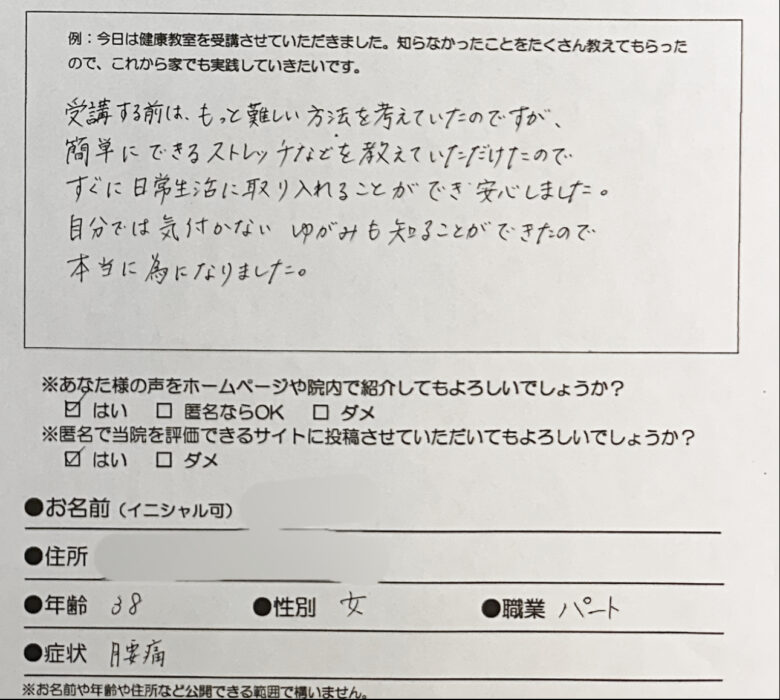 例：今日は健康教室を受講させていただきました。知らなかったことをたくさん教えてもらった
ので、これから家でも実践していきたいです。
受講する前は、もっと難しい方法を考えていたのですが、
簡単にできるストレッチなどを教えていただけたので
すぐに日常生活に取り入れることができ安心しました。
自分では気付かないゆがみも知ることができたので
本当に為になりました。
※あなた様の声をホームページや院内で紹介してもよろしいでしょうか？
☑ はい □ 匿名ならOK □ ダメ
※匿名で当院を評価できるサイトに投稿させていただいてもよろしいでしょうか？
☑ はい □ ダメ
●お名前（イニシャル可）
●住所
●年齢 38 ●性別 女 ●職業 パート
●症状 腰痛
※お名前や年齢や住所など公開できる範囲で構いません。